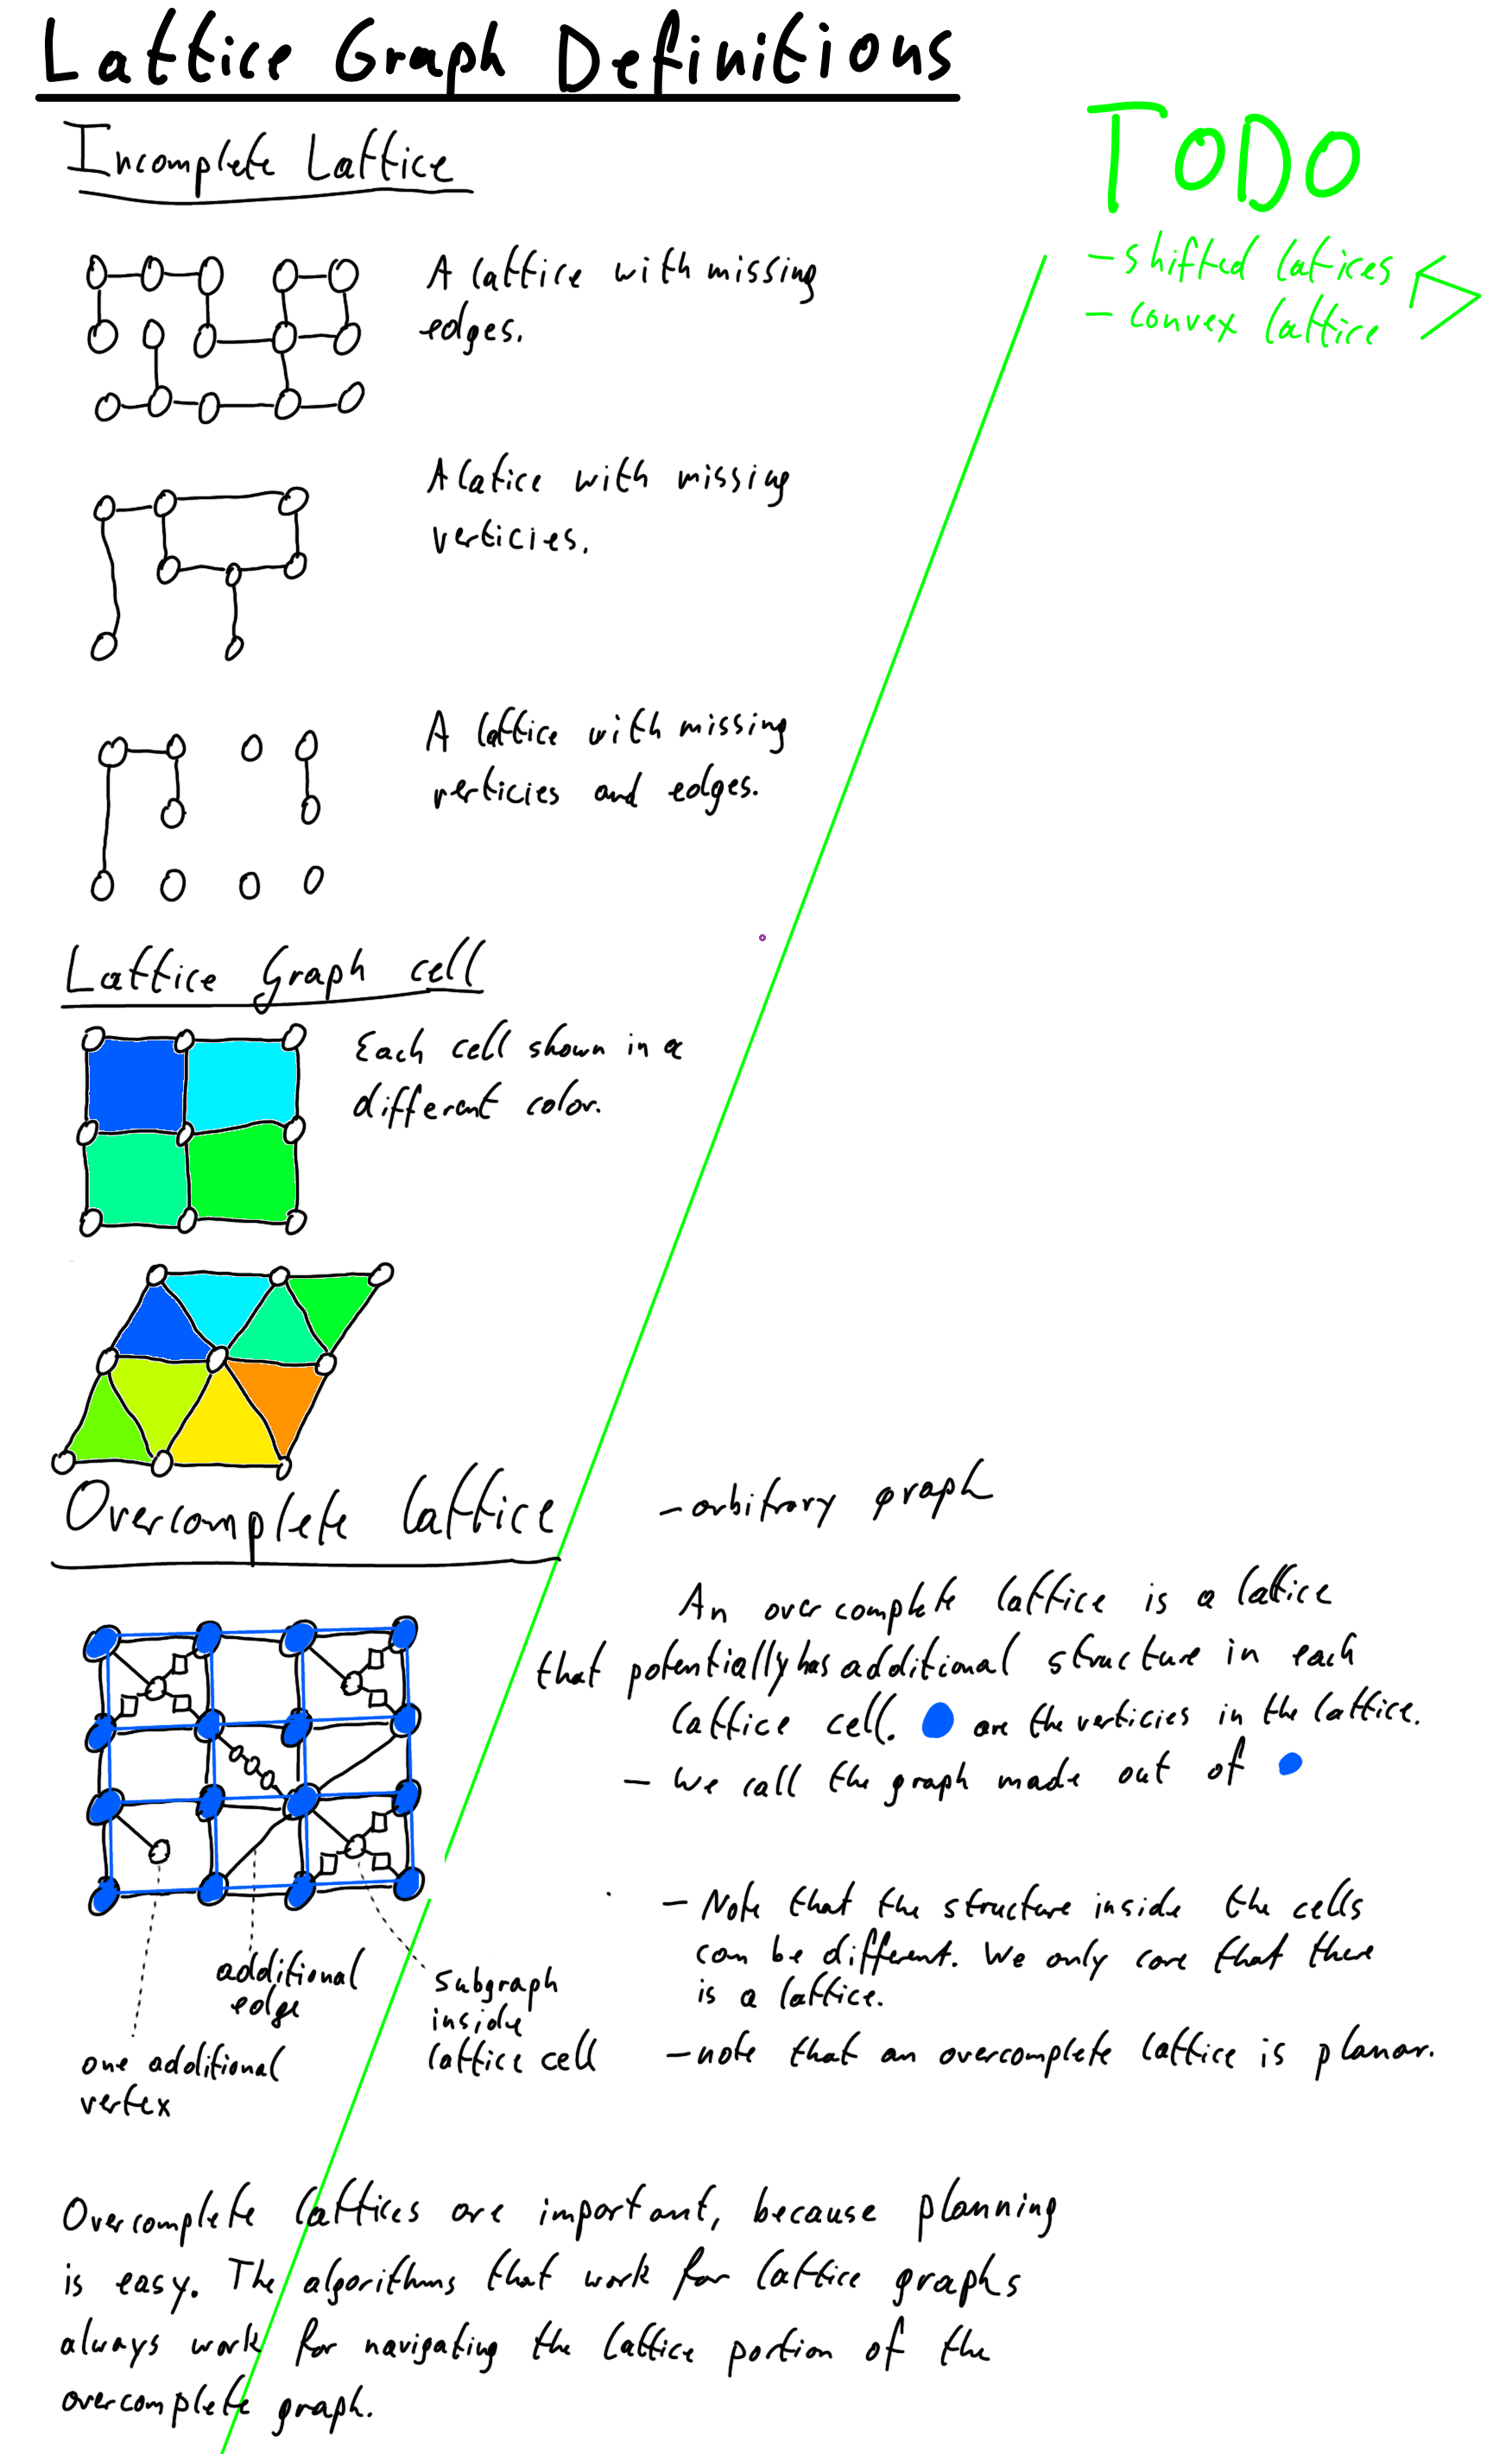 Lattice Graph Definitions
TODO
- shifted latices
- convex lattice
Incomplete Lattice
A lattice with missing
edges.
A latice with missing
verticies.
A lattice with missing
verticies and edges.
Lattice Graph cell
Each cell shown in a
different color.
Overcomplete lattice
- arbitrary graph
An over complete lattice is a lattice
that potentially has additional structure in each
lattice cell. are the verticies in the lattice.
- We call the graph made out of
- Note that the structure inside the cells
can be different. We only care that there
is a lattice.
- note that an overcomplete lattice is planar.
additional
edge
subgraph
inside
lattice cell
one additional
vertex
Overcomplete lattices are important, because planning
is easy. The algorithms that work for lattice graphs
always work for navigating the lattice portion of the
overcomplete graph.